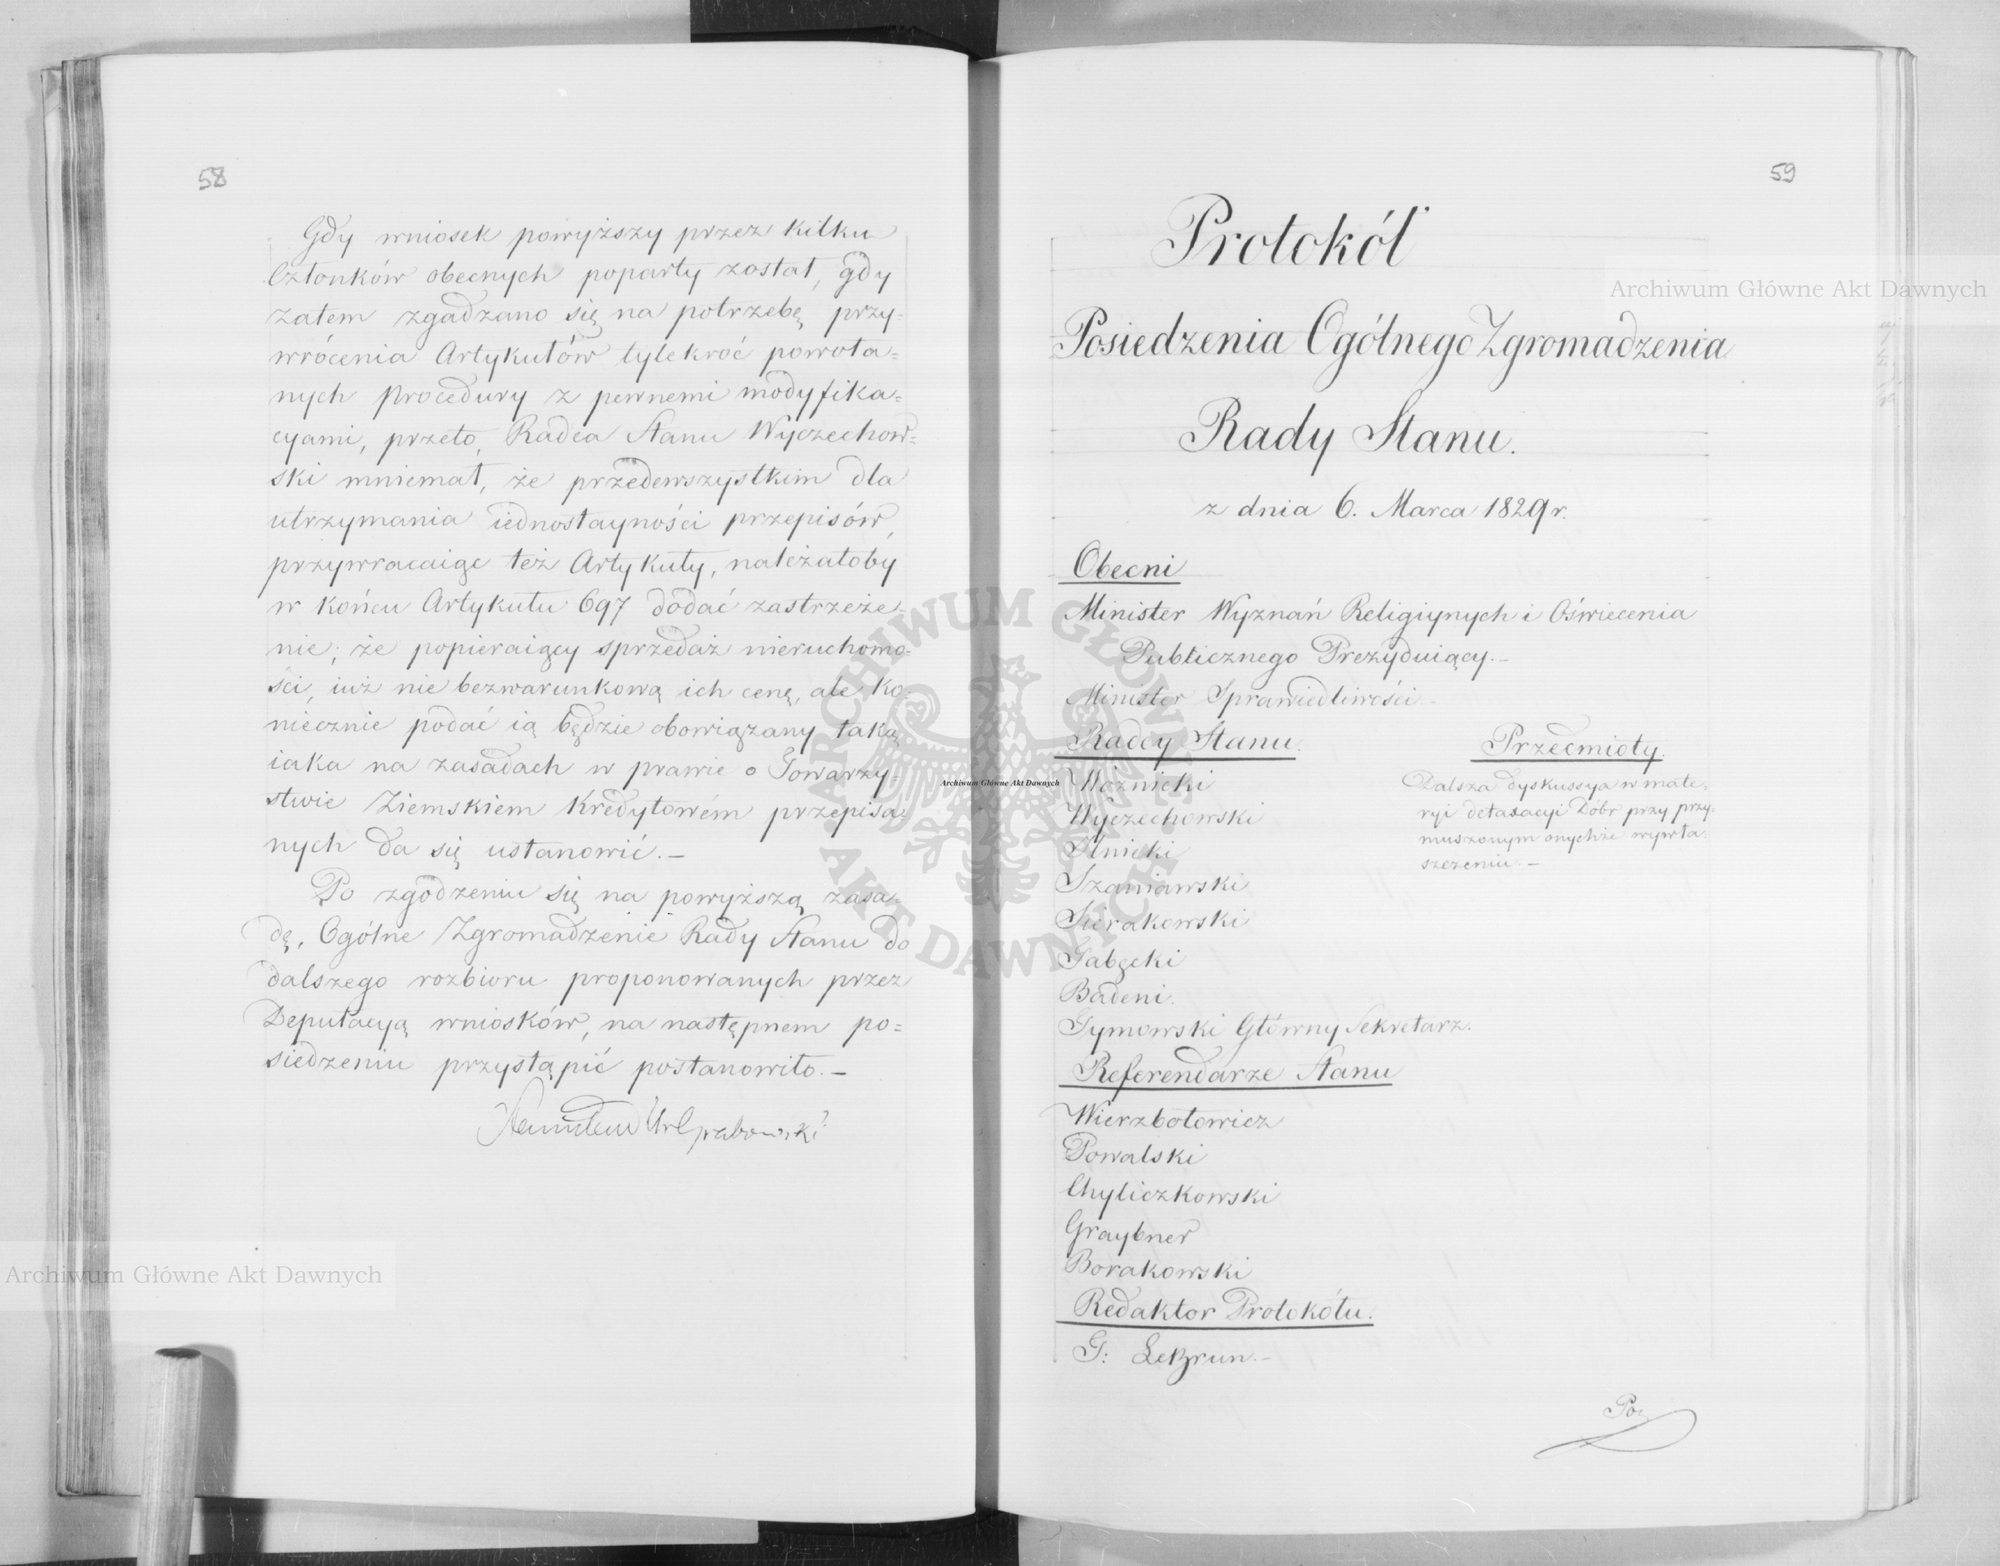 58
Gdy wniosek powyższy przez kilku
Członków obecnych poparty został, gdy
zatem zgadzano się na potrzebę przy-
wrócenia Artykułów tylekroć powoła=
nych Procedury z pewnemi modyfika=
cyami, przeto, Radca Stanu Wyczechow=
ski mniemał, że przedewszystkim dla
utrzymania iednostayności przepisów,
przywracaiąc też Artykuły, należałoby
w końcu Artykułu 697 dodać zastrzeże-
nie; że popieraiący sprzedaż nieruchomo-
ści, iuż nie bezwarunkową ich cenę, ale ko-
niecznie podać ią będzie obowiązany taką
iaka na zasadach w prawie o Towarzy-
stwie Ziemskiem Kredytowém przepisa-
nych da się ustanowić.—
Po zgodzeniu się na powyższą zasa-
dę, Ogólne Zgromadzenie Rady Stanu do
dalszego rozbioru proponowanych przez
Deputacyą wniosków, na następnem po=
siedzeniu przystąpić postanowiło.—
Grabowski
59
Protokół
Posiedzenia Ogólnego Zgromadzenia
Rady Stanu.
z dnia 6. Marca 1829 r.
Obecni
Minister Wyznań Religiynych i Oświecenia
Publicznego Prezyduiący.—
Minister Sprawiedliwości.
Radcy Stanu.
Woźnicki
Wyczechowski
Ilnicki
Szaniawski
Sierakowski
Gąbecki
Badeni.
Tymowski Główny Sekretarz.
Referendarze Stanu
Wierzbołowicz
Powalski
Chyliczkowski
Graybner
Borakowski
Redaktor Protokółu.
G: LeBrun.—
Przedmioty.
Dalsza dyskussya w mate-
ryi detaxacyi Dóbr przy przy-
muszonym onychże wywła-
szczeniu.—
Archiwum Główne Akt Dawnych
Archiwum Główne Akt Dawnych
Archiwum Główne Akt Dawnych
ARCHIWUM GŁÓWNE AKT DAWNYCH